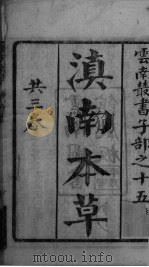 雲南叢書子部之十五
滇南本草
共三本